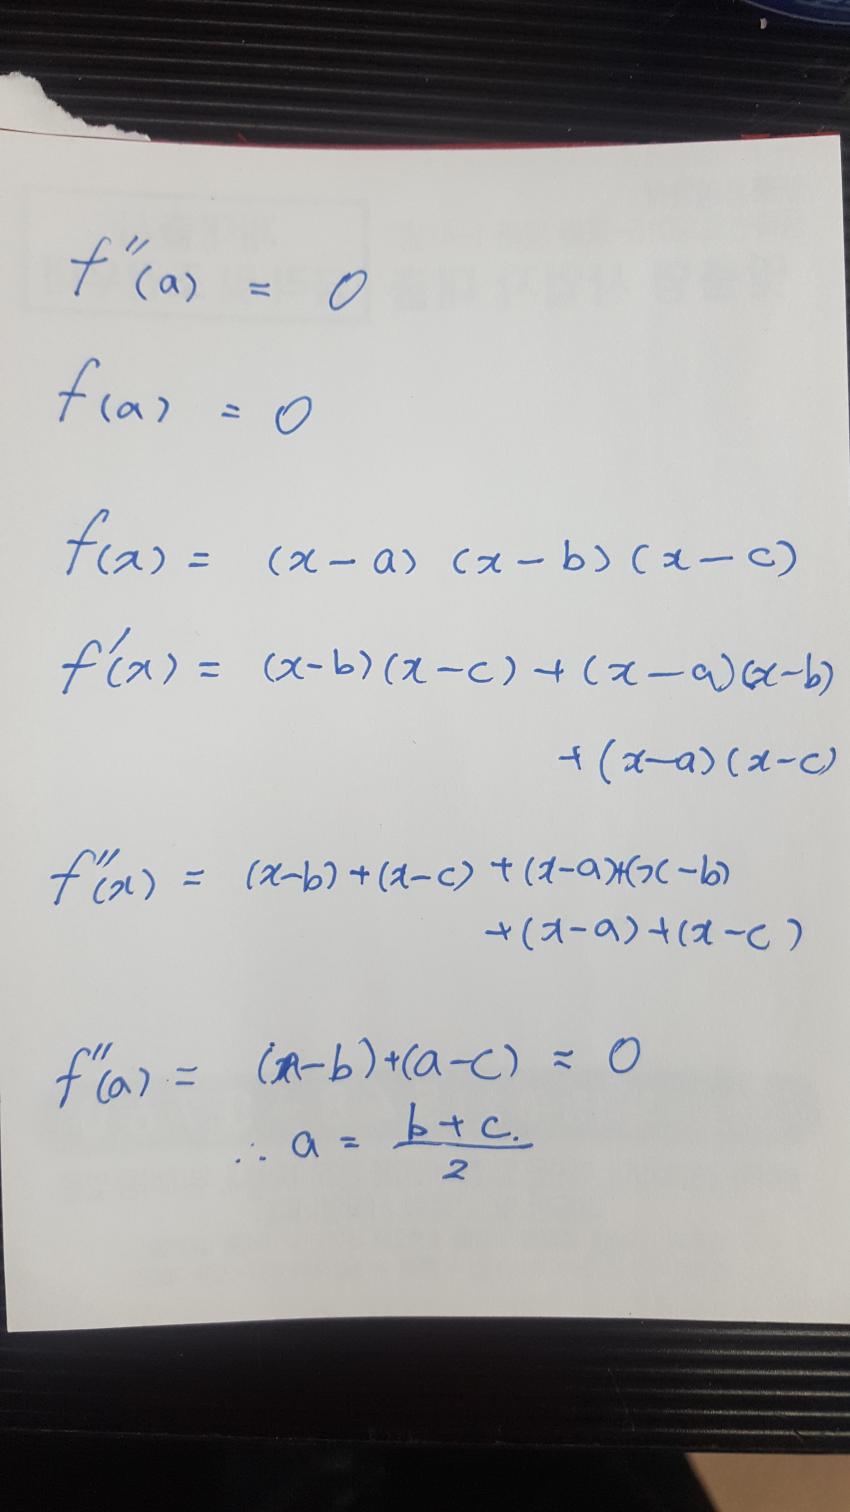 f''(a) = 0
f(a) = 0
f(x) = (x-a) (x-b) (x-c)
f'(x) = (x-b)(x-c)+(x-a)(x-b)
+(x-a)(x-c)
f''(x) = (x-b)+(x-c)+(x-a)+(x-b)
+(x-a)+(x-c)
f''(a) = (a-b)+(a-c) = 0
∴ a = \frac{b+c.}{2}